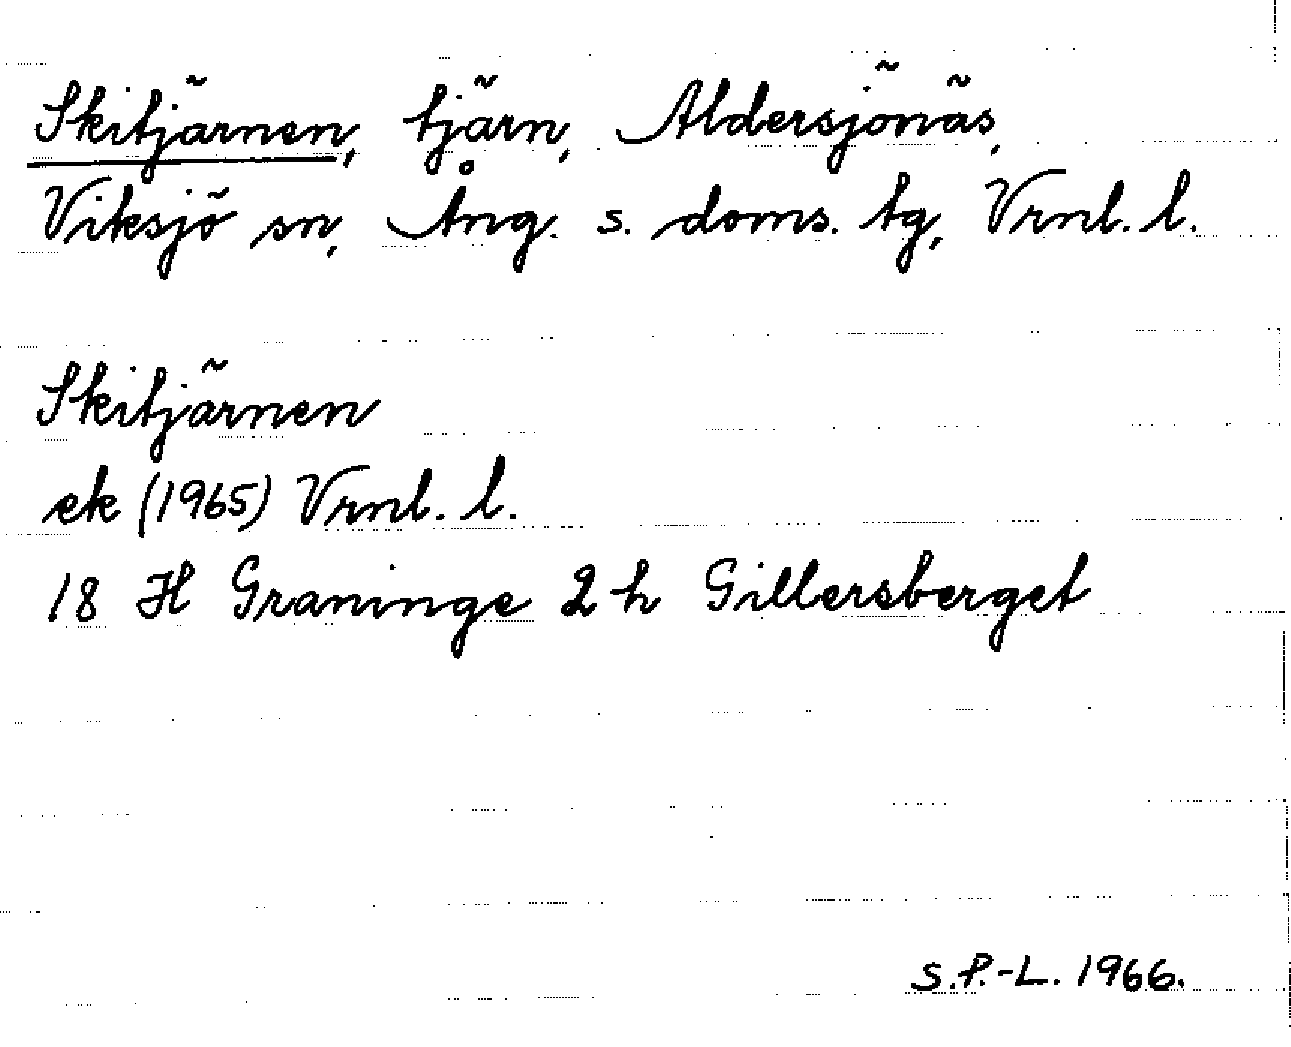 Skitjärnen, tjärn, Aldersjönäs,
Viksjö sn, Ång. s. doms. tg, Vrnl. l.
Skitjärnen
ek (1965) Vrnl. l.
18 H Graninge 2 h Gillersberget
S.P.-L. 1966.